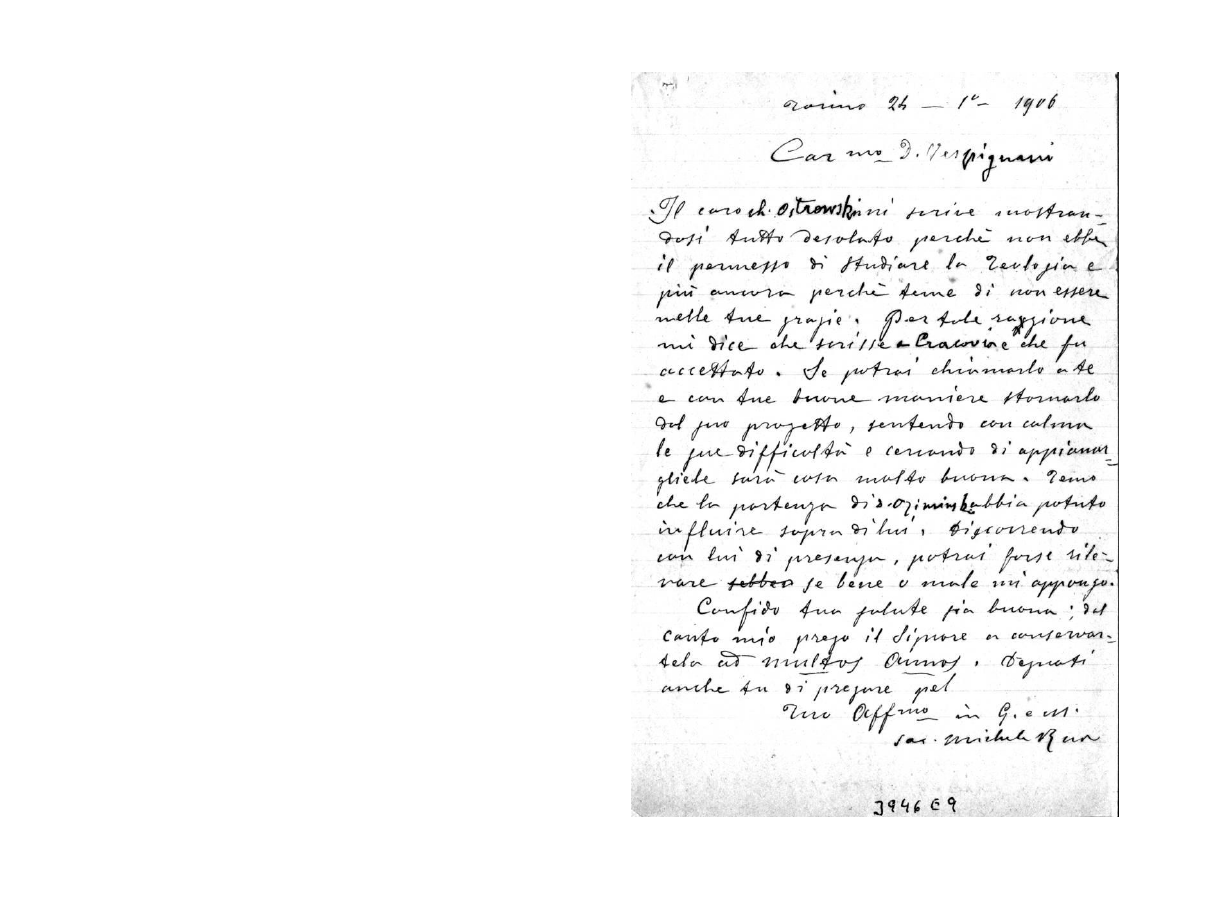 Torino 24 — 1º — 1906
Car.mo D. Vespignani
Il caro ch. Ostrowski mi scrive mostran-
dosi tutto desolato perchè non ebbe
il permesso di studiare la Teologia e
più ancora perchè teme di non essere
nelle tue grazie. Per tale raggione
mi dice che scrisse a Cracovia e che fu
accettato. Se potrai chiamarlo a te
e con tue buone maniere stornarlo
dal suo progetto, sentendo con calma
le sue difficoltà e cercando di appianar-
gliele sarà cosa molto buona. Temo
che la partenza di D. Oziminski abbia potuto
influire sopra di lui. Discorrendo
con lui di presenza, potrai forse rile-
vare sebben se bene o male mi appongo.
Confido tua salute sia buona; dal
canto mio prego il Signore a conservar-
tela ad multos annos. Degnati
anche tu di pregare pel
Tuo Aff.mo in G. e M.
Sac. Michele Rua
3946 E 9